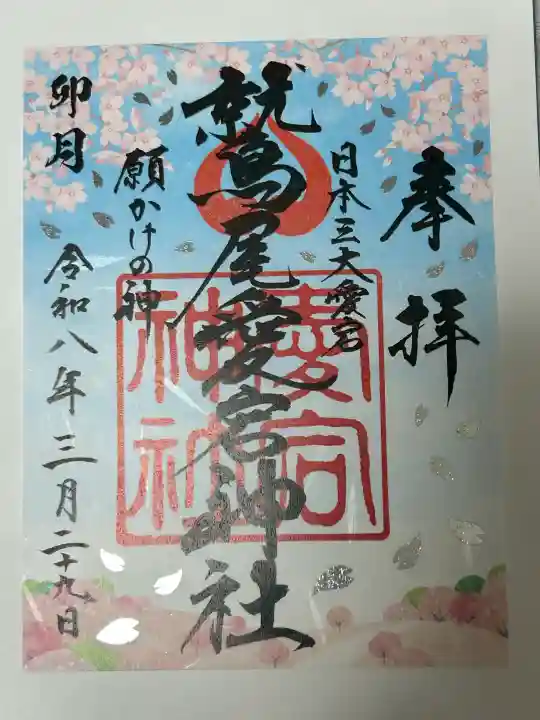 奉拝
日本三大愛宕
鷲尾愛宕神社
愛宕神社
願かけの神
卯月
令和八年三月二十九日